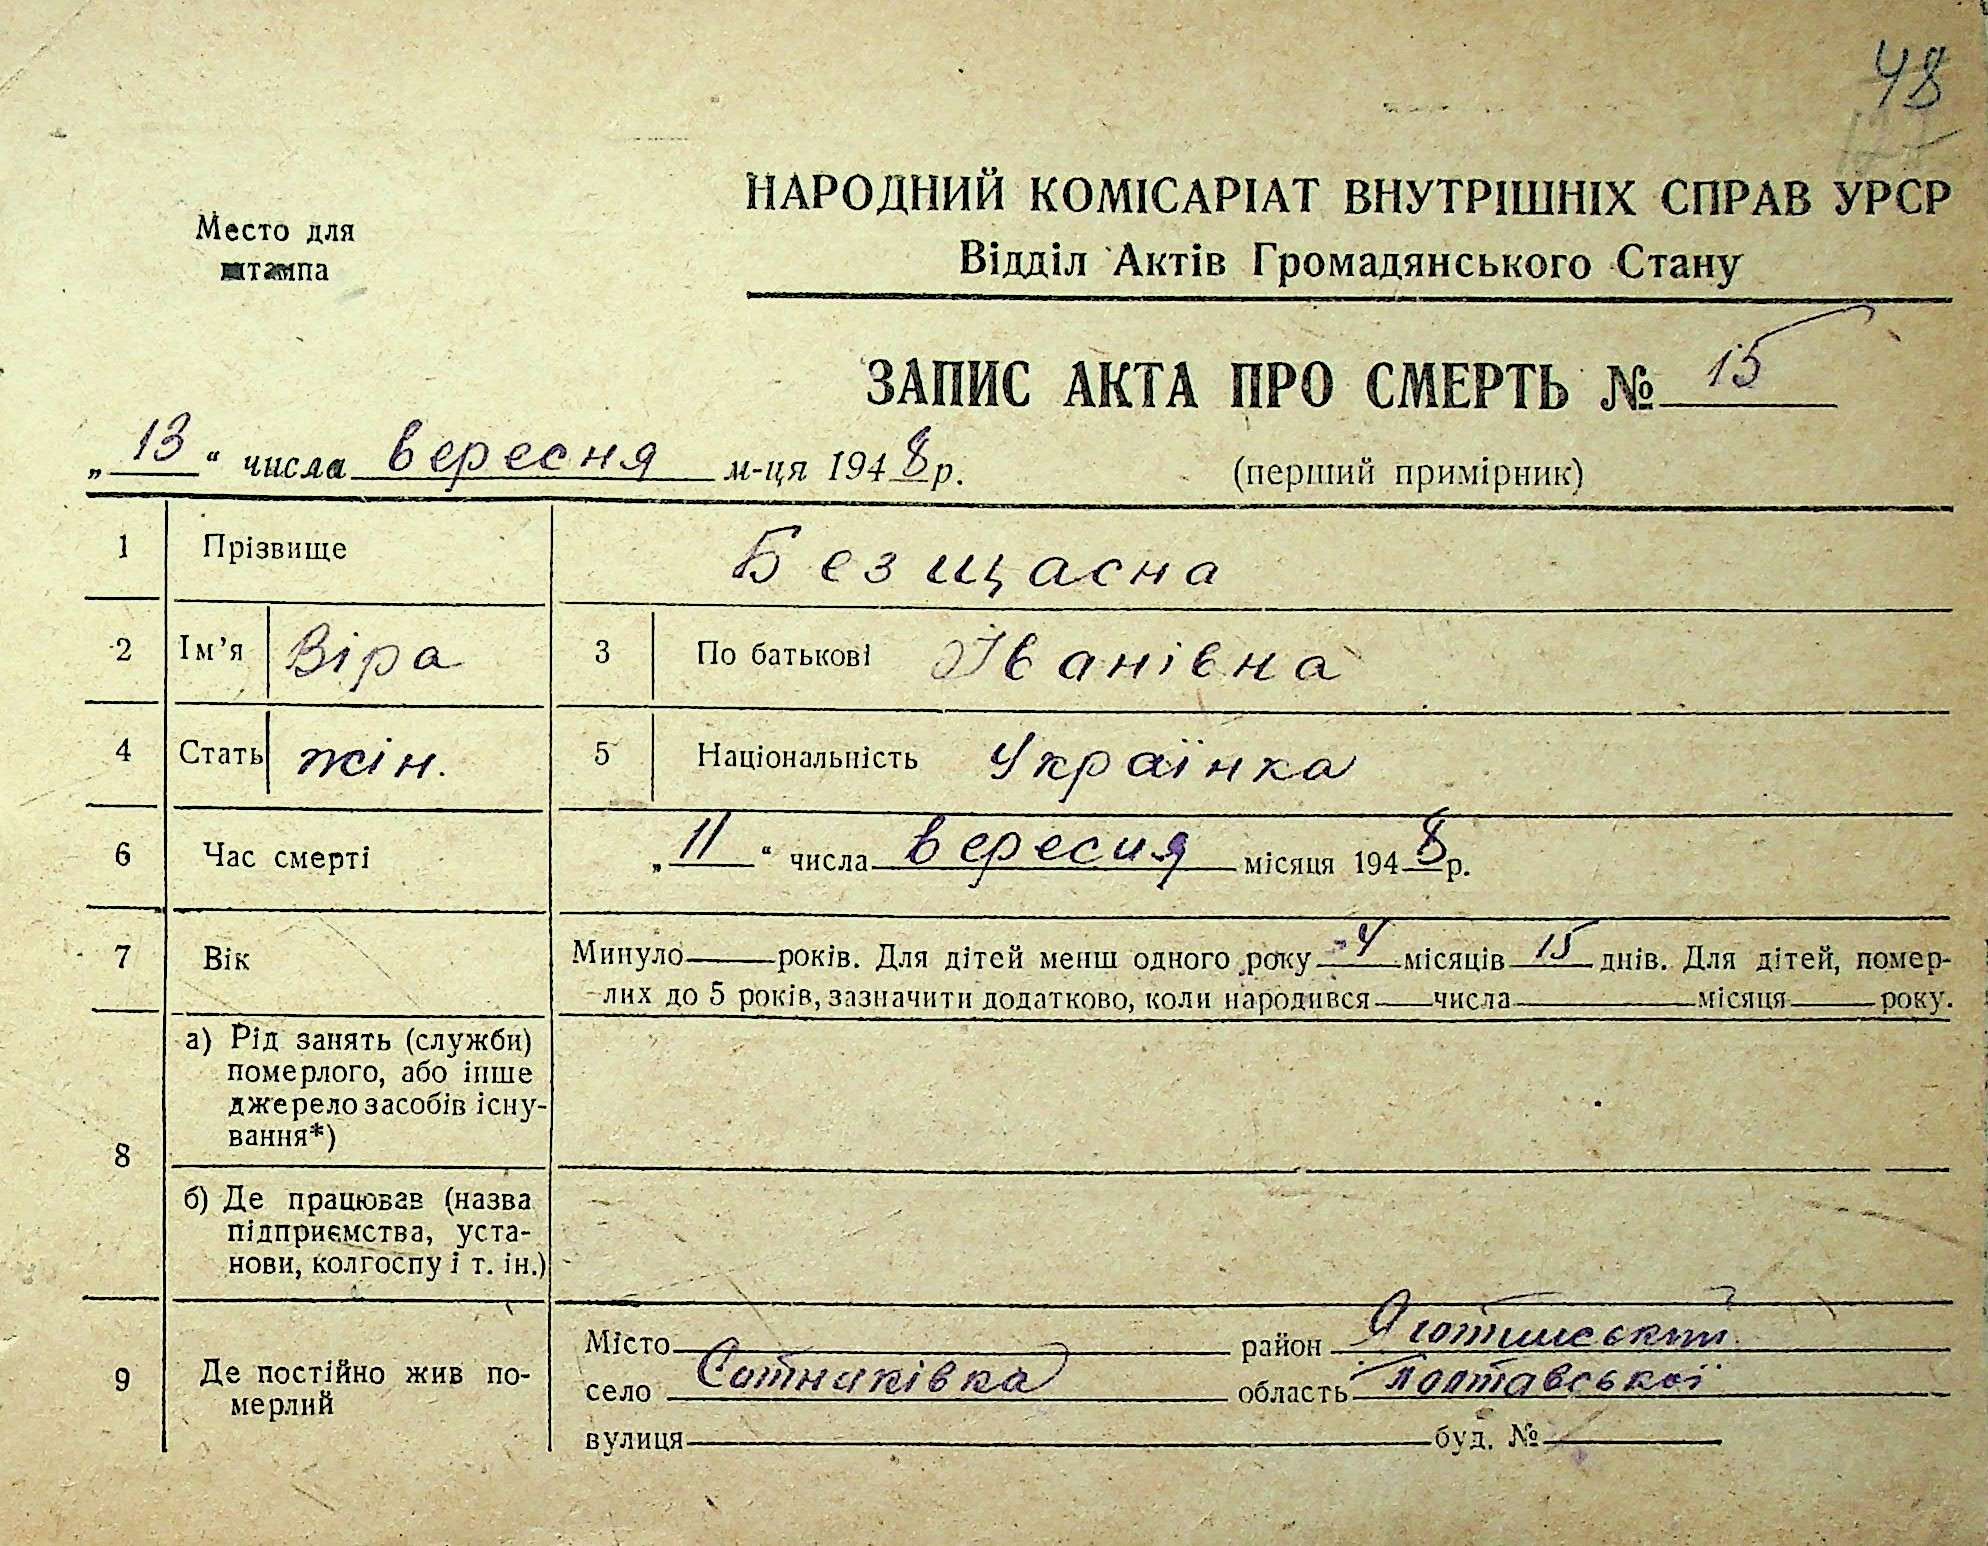 48
127
НАРОДНИЙ КОМІСАРІАТ ВНУТРІШНІХ СПРАВ УРСР
Место для
штампа
Відділ Актів Громадянського Стану
ЗАПИС АКТА ПРО СМЕРТЬ № 15
„13“ числа вересня м-ця 1948 р.
(перший примірник)
1 Прізвище Безщасна
2 Ім’я Віра 3 По батькові Іванівна
4 Стать жін. 5 Національність Українка
6 Час смерті „11“ числа вересня місяця 1948 р.
7 Вік Минуло — років. Для дітей менш одного року 4 місяців 15 днів. Для дітей, помер-
лих до 5 років, зазначити додатково, коли народився — числа — місяця — року.
8 а) Рід занять (служби)
померлого, або інше
джерело засобів існу-
вання*)
б) Де працював (назва
підприємства, уста-
нови, колгоспу і т. ін.)
9 Де постійно жив по-
мерлий
Місто район Яготинський
село Сотниківка область Полтавської
вулиця буд. №